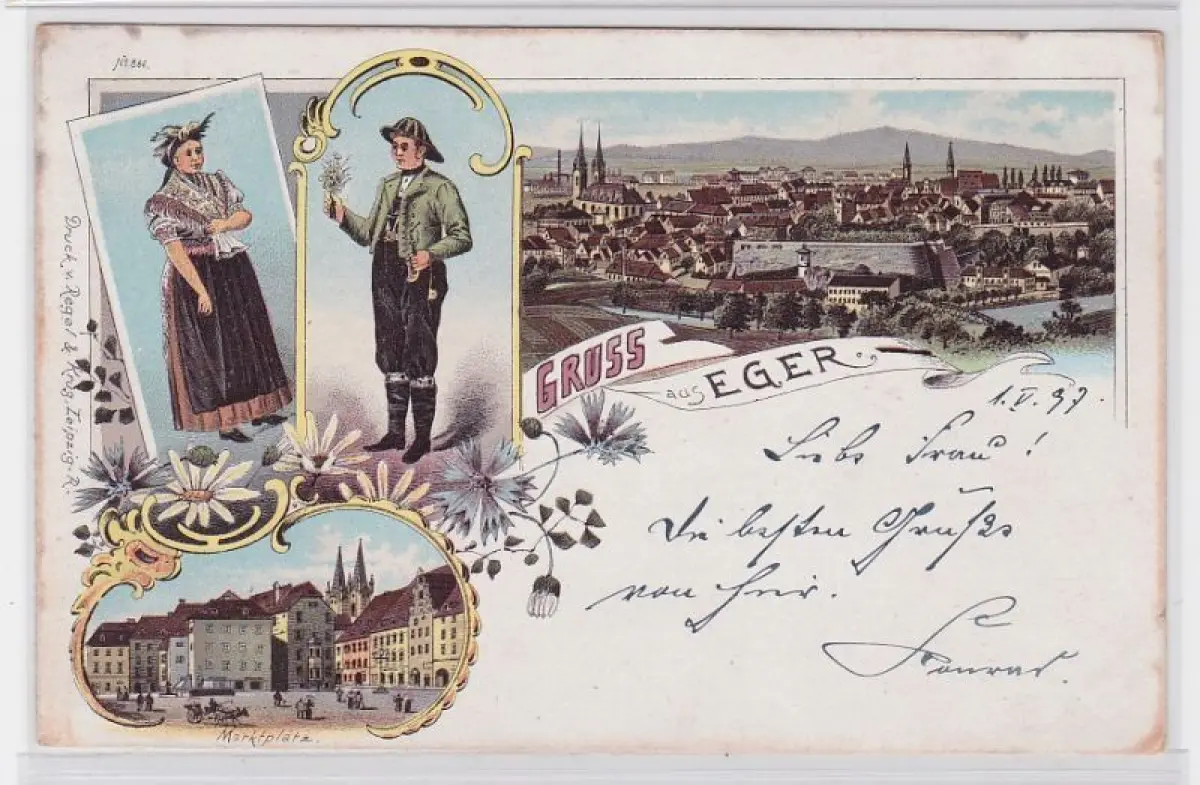 No 866.
Druck v. Regel & Krug, Leipzig-R.
GRUSS
aus EGER.
1. V. 97.
Liebe Frau!
Die besten Grüße
von hier.
Konrad.
Marktplatz.